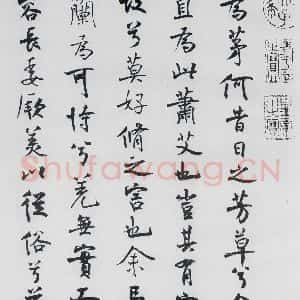 為茅何昔日之芳草兮今
直為此蕭艾也豈其有
故兮莫好脩之害也余
蘭為可恃兮羌無實而
容長委厥美以從俗兮
Shufawang.CN